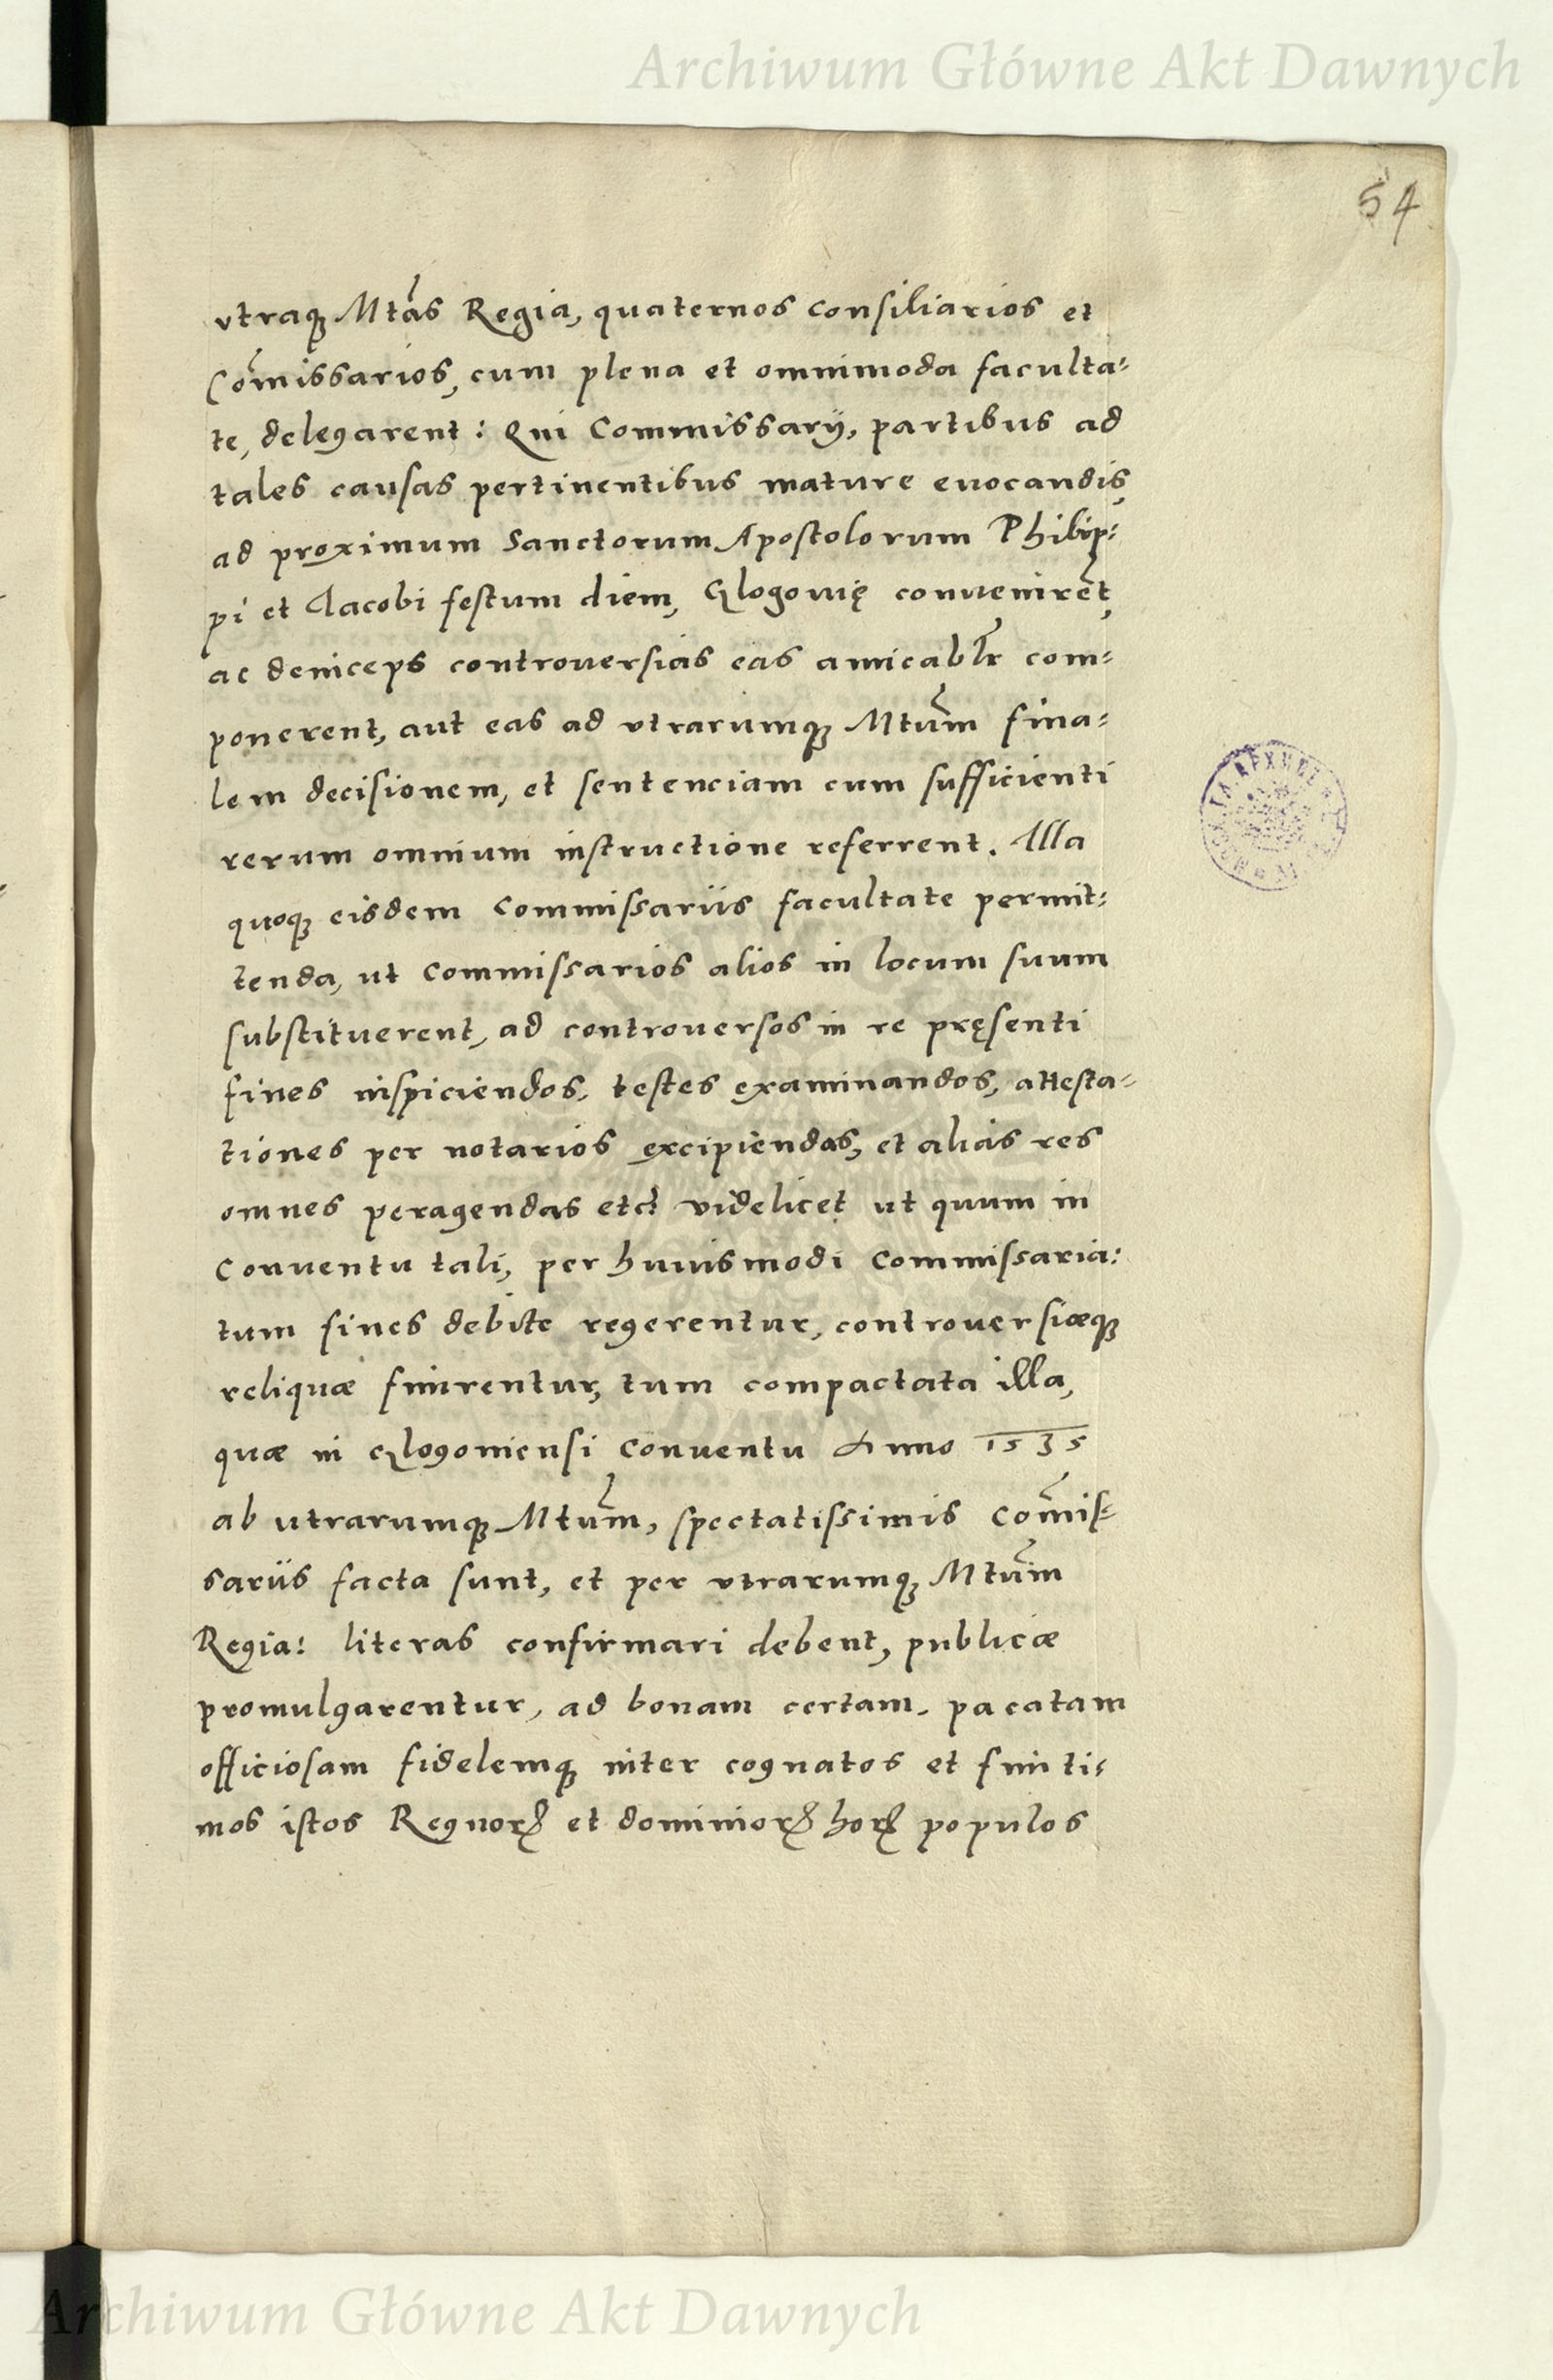 Archiwum Główne Akt Dawnych
54
vtraqȝ Mtas Regia, quaternos consiliarios et
Comissarios, cum plena et omnimoda faculta-
te, delegarent: Qui Commissarij, partibus ad
tales causas pertinentibus mature euocandis,
ad proximum Sanctorum Apostolorum Philip-
pi et Iacobi festum diem, Glogouię conuenirēt,
ac deniceps controuersias eas amicablr com-
ponerent, aut eas ad vtrarumqȝ Mtum fina-
lem decisionem, et sentenciam cum sufficienti
rerum omnium instructione referrent. Illa
quoqȝ eisdem Commissariis facultate permit-
tenda, ut Commissarios alios in locum suum
substituerent, ad controuersos in re pręsenti
fines inspiciendos, testes examinandos, attesta-
tiones per notarios excipiendas, et alias res
omnes peragendas etc: videlicet ut quum in
Conuentu tali, per huiusmodi Commissaria:
tum fines debite regerentur, controuersiæqȝ
reliquæ finirentur, tum compactata illa,
quæ in Glogoniensi Conuentu Anno 1535
ab utrarumqȝ Mtum, spectatissimis Comis-
sariis facta sunt, et per vtrarumqȝ Mtum
Regia: literas confirmari debent, publicæ
promulgarentur, ad bonam certam, pacatam
officiosam fidelemqȝ inter cognatos et finiti-
mos istos Regnorꝝ et dominiorꝝ horꝝ populos
Archiwum Główne Akt Dawnych